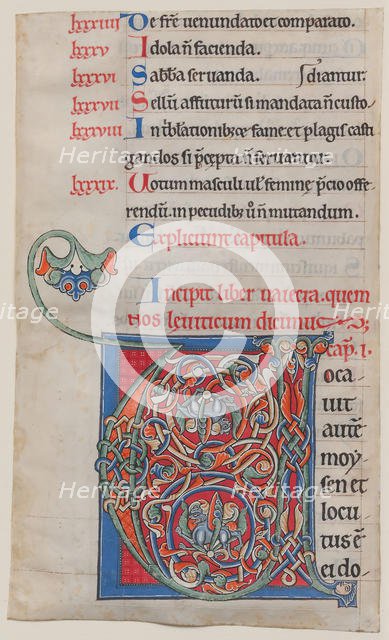 lxxxiiii De fr̄e uenundato et comparato.
lxxxv Idola n̄ facienda.
lxxxvi Sabb̄a seruanda. ſdiantur.
lxxxvii Sellū affuturū si mandata n̄ custo
lxxxviii In
fame et plagis casti
gandos si p̄cepta n̄ seruarint.
lxxxix. Uotum masculi ul' femine p̄cio offe
rendū. in pecudib; ū n̄ mutandum.
Expliciunt capitula.
Incipit liber uaiecra. quem
nos leuiticum dicimus
cap̄. I.
Uoca
uit
autē
moy
sen et
locu
tus ē
ei do
Heritage Heritage
Heritage Heritage
Heritage Heritage
Heritage Heritage